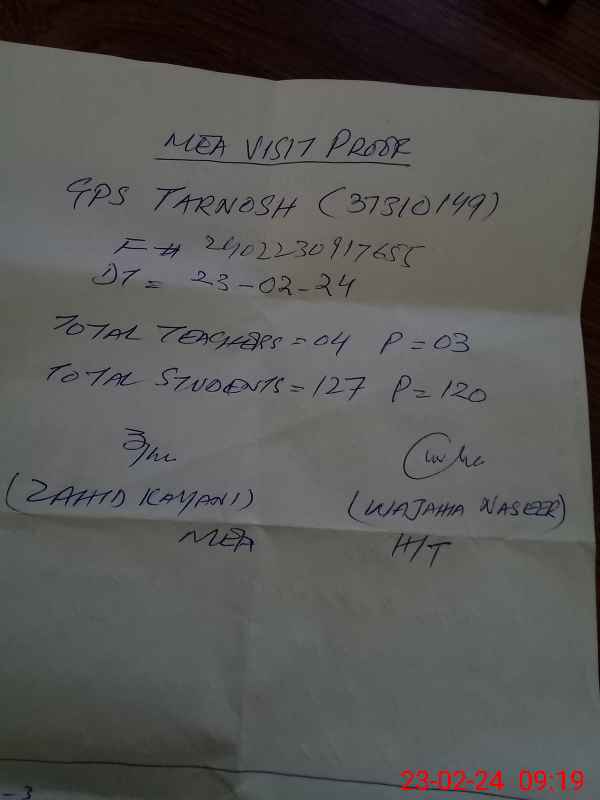 MEA VISIT PROOF
GPS TARNOSH (37310149)
F# 2402230917655
DT = 23-02-24
TOTAL TEACHERS = 04 P = 03
TOTAL STUDENTS = 127 P = 120
(ZAHID KAYANI) (WAJAHA NASEER)
MEA H/T
-3
23-02-24 09:19